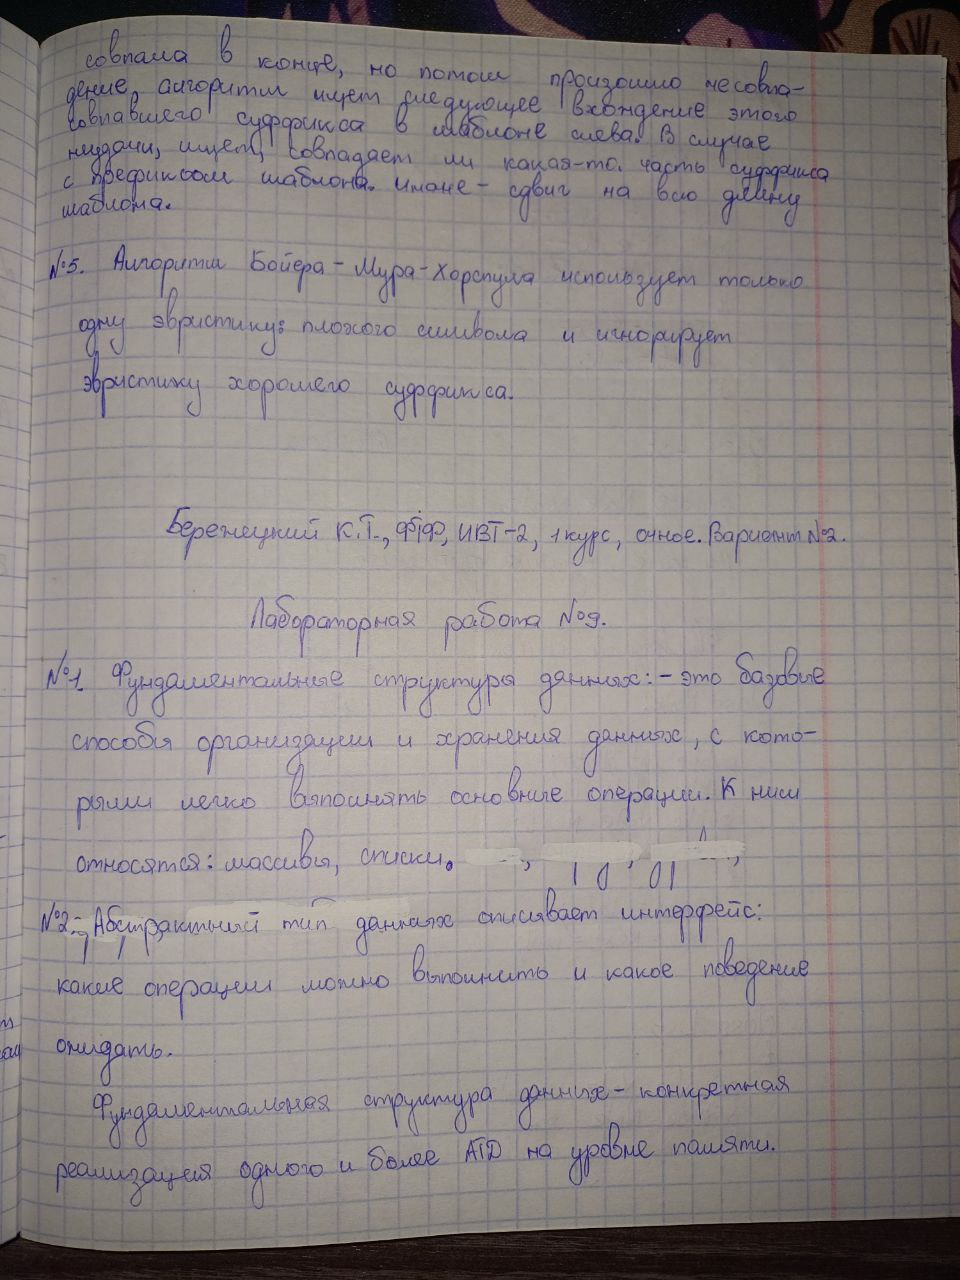 совпала в конце, но потом произошло несовпа-
дение, алгоритм ищет следующее вхождение этого
совпавшего суффикса в шаблоне слева. В случае
неудачи, ищет, совпадает ли какая-то. часть суффикса
с префиксом шаблона. иначе - сдвиг на всю длину
шаблона.
№5. Алгоритм Бойера-Мура-Хорспула использует только
одну эвристику: плохого символа и игнорирует
эвристику хорошего суффикса.
Бережецкий К.Т., ФТФ, ИВТ-2, 1 курс, очное. Вариант №2.
Лабораторная работа №9.
№1. Фундаментальные структуры данных: - это базовые
способы организации и хранения данных, с кото-
рыми легко выполнять основные операции. К ним
относятся: массивы, списки.
№2. Абстрактный тип данных описывает интерфейс:
какие операции можно выполнить и какое поведение
ожидать.
Фундаментальная структура данных - конкретная
реализация одного и более ATD на уровне памяти.